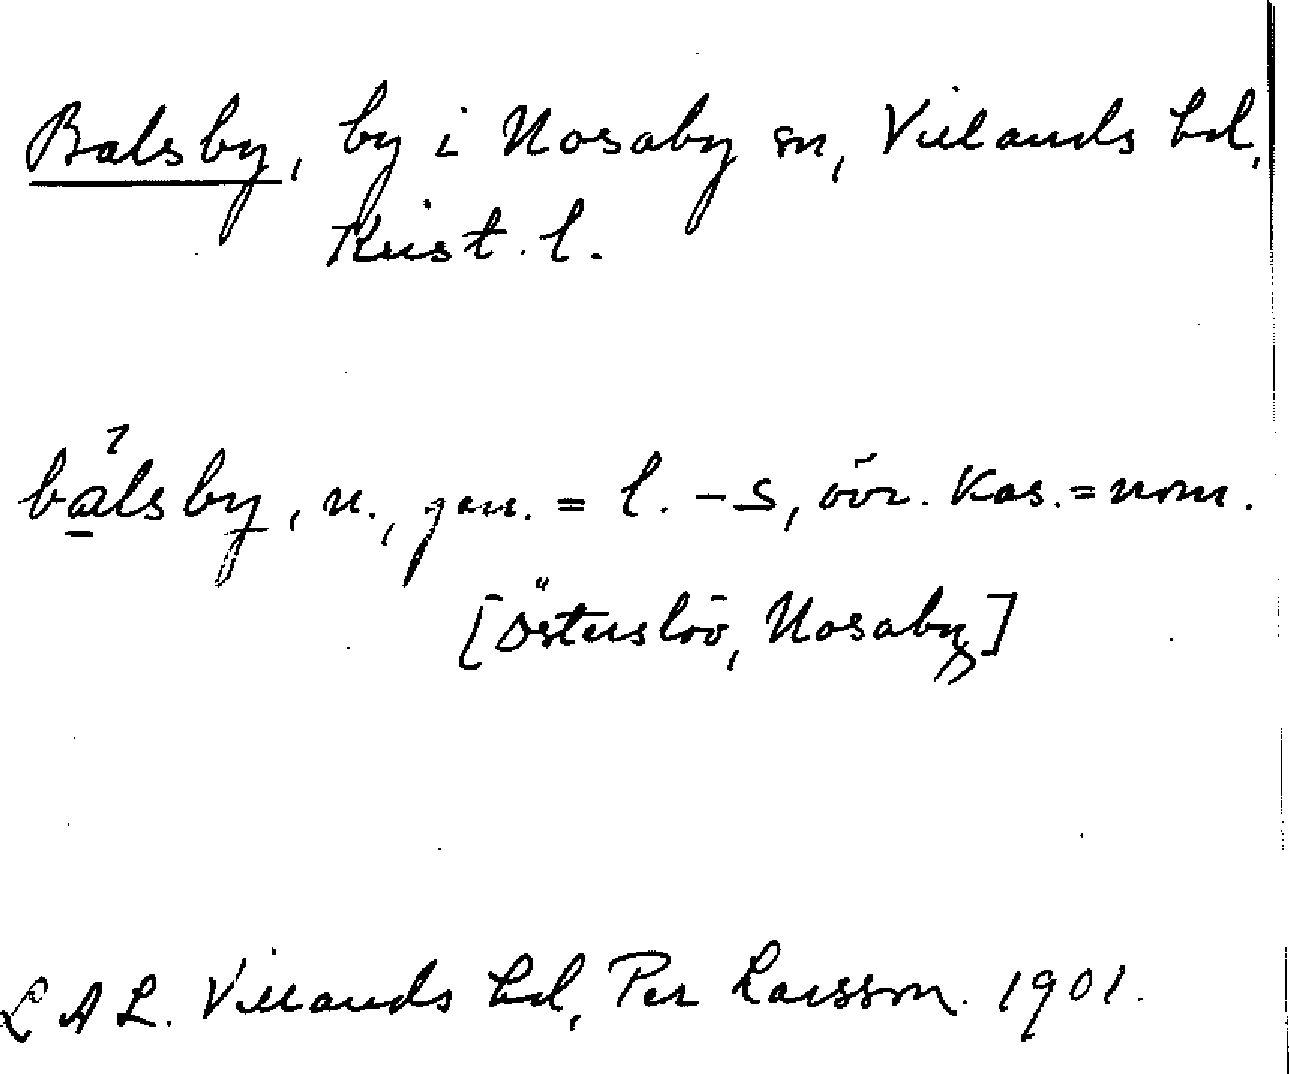 Balsby, by i Nosaby sn, Villands hd,
Krist. l.
balsby, n., gen. = l. -s, övr. kas. = nom.
[Österslöv, Nosaby]
LAL. Villands hd, Per Larsson. 1901.